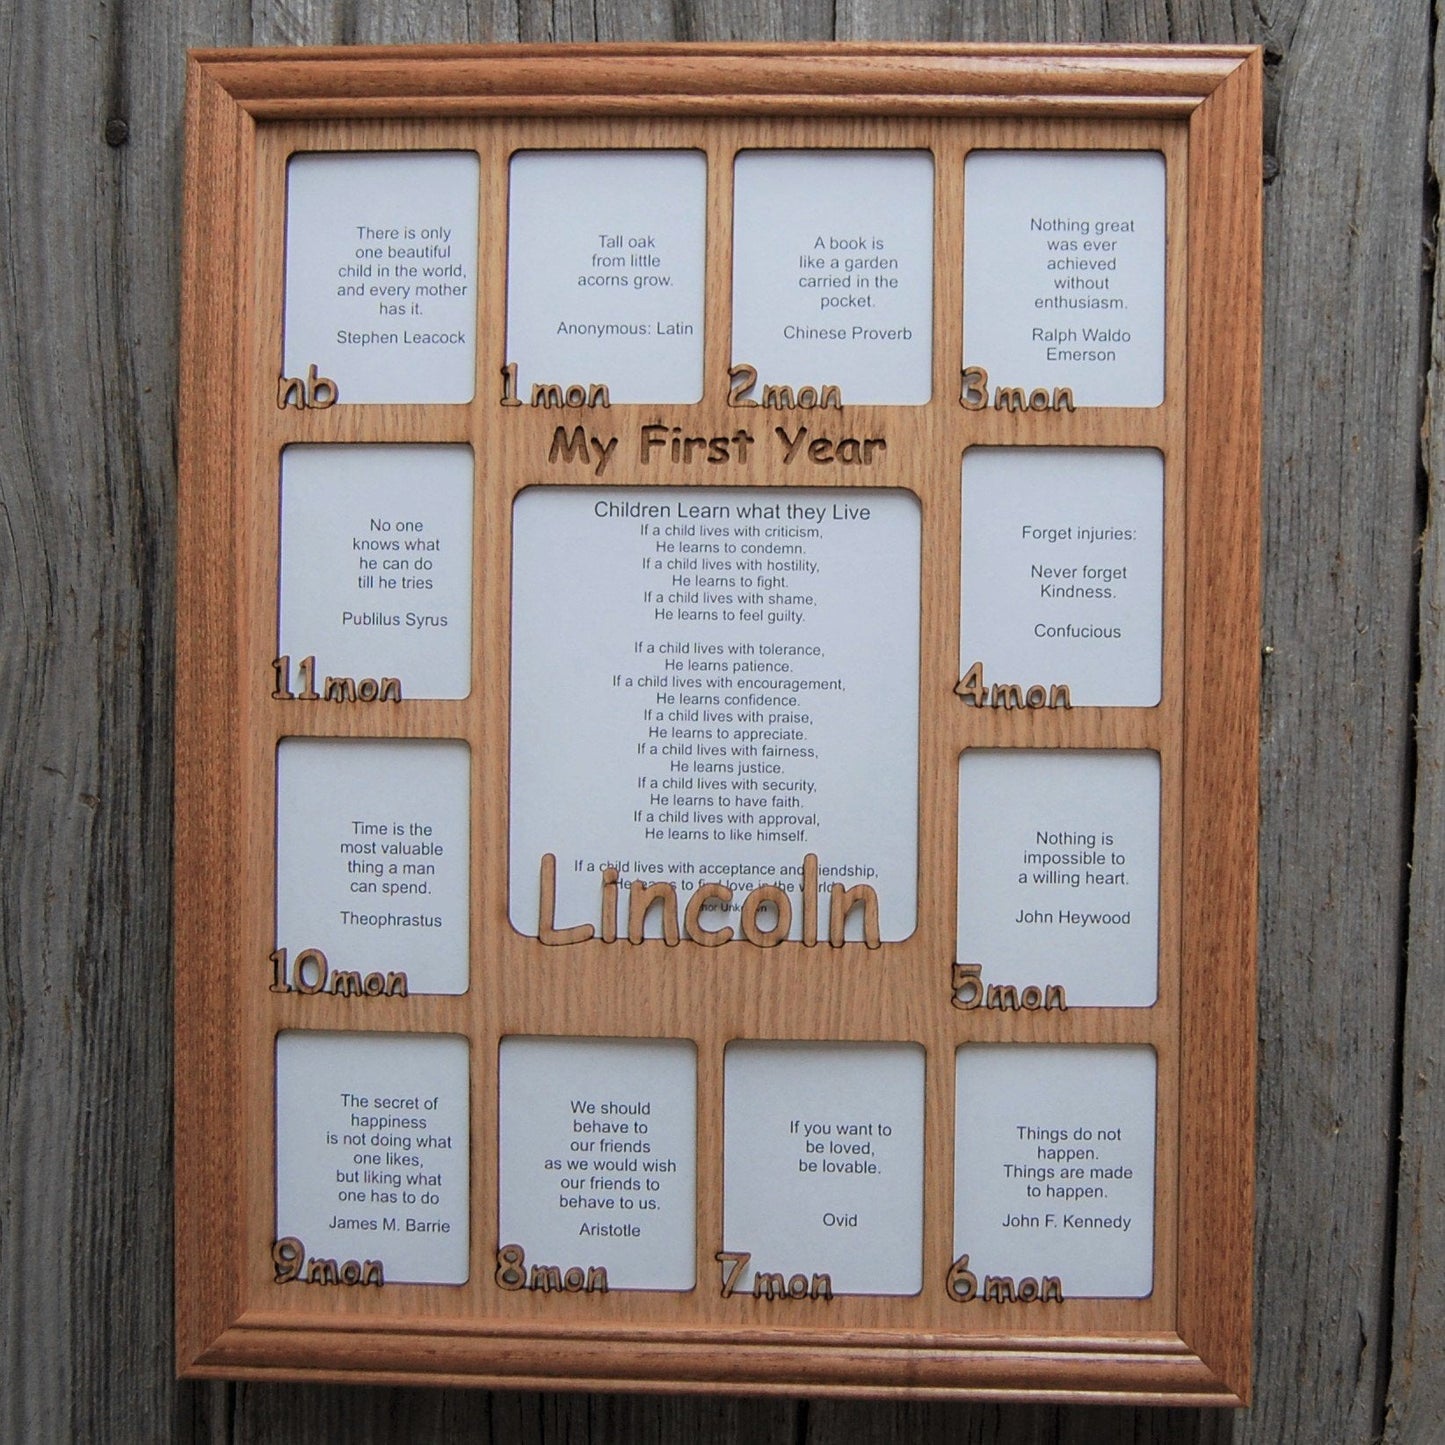 There is only
one beautiful
child in the world,
and every mother
has it.
Stephen Leacock
nb
Tall oak
from little
acorns grow.
Anonymous: Latin
1mon
A book is
like a garden
carried in the
pocket.
Chinese Proverb
2mon
Nothing great
was ever
achieved
without
enthusiasm.
Ralph Waldo
Emerson
3mon
My First Year
No one
knows what
he can do
till he tries
Publilus Syrus
11mon
Children Learn what they Live
If a child lives with criticism,
He learns to condemn.
If a child lives with hostility,
He learns to fight.
If a child lives with shame,
He learns to feel guilty.
If a child lives with tolerance,
He learns patience.
If a child lives with encouragement,
He learns confidence.
If a child lives with praise,
He learns to appreciate.
If a child lives with fairness,
He learns justice.
If a child lives with security,
He learns to have faith.
If a child lives with approval,
He learns to like himself.
If a child lives with acceptance and
to love in the
Lincoln
Forget injuries:
Never forget
Kindness.
Confucious
4mon
Time is the
most valuable
thing a man
can spend.
Theophrastus
10mon
Nothing is
impossible to
a willing heart.
John Heywood
5mon
The secret of
happiness
is not doing what
one likes,
but liking what
one has to do
James M. Barrie
9mon
We should
behave to
our friends
as we would wish
our friends to
behave to us.
Aristotle
8mon
If you want to
be loved,
be lovable.
Ovid
7mon
Things do not
happen.
Things are made
to happen.
John F. Kennedy
6mon